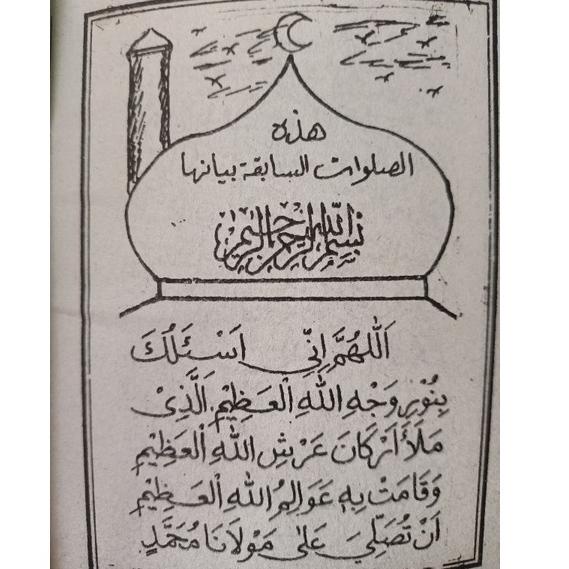 هذه
الصلوات السابقة بيانها
بسم الله الرحمن الرحيم
اَللّٰهُمَّ اِنِّي اَسْئَلُكَ
بِنُوْرِ وَجْهِ اللّٰهِ الْعَظِيْمِ الَّذِىْ
مَلَأَ اَرْكَانَ عَرْشِ اللّٰهِ الْعَظِيْمِ
وَقَامَتْ بِهِ عَوَالِمُ اللّٰهِ الْعَظِيْمِ
اَنْ تُصَلِّيَ عَلٰى مَوْلَانَا مُحَمَّدٍ